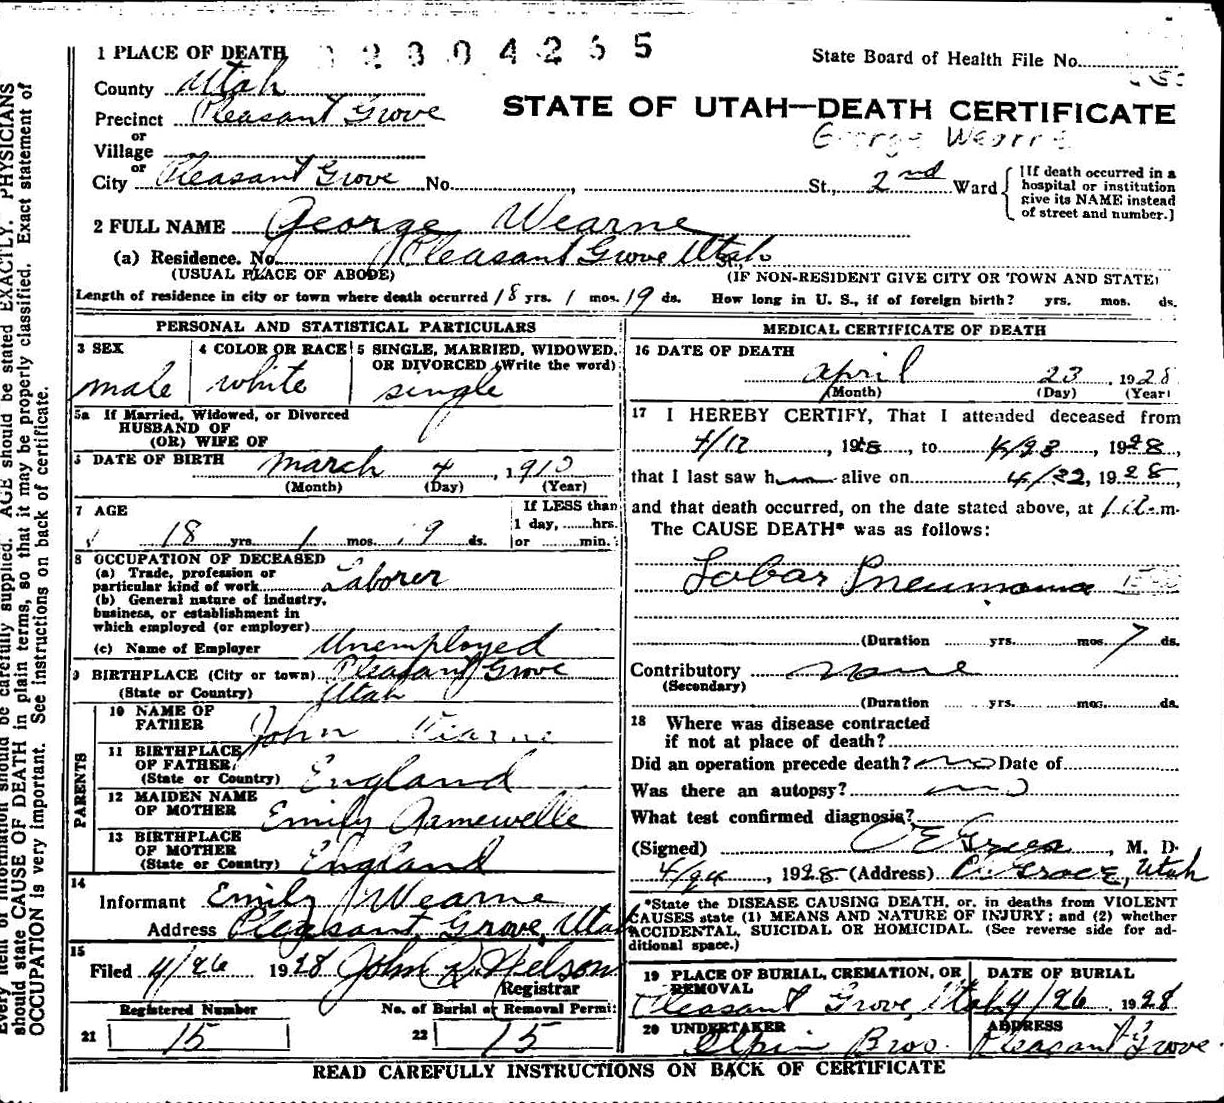 1 PLACE OF DEATH
State Board of Health File No.
County Utah
STATE OF UTAH—DEATH CERTIFICATE
Precinct Pleasant Grove
George Wearne
or
Village
or
City Pleasant Grove No. , St., 2nd Ward
[If death occurred in a
hospital or institution
give its NAME instead
of street and number.]
2 FULL NAME George Wearne
(a) Residence. No. Pleasant Grove Utah St.,
(USUAL PLACE OF ABODE) (IF NON-RESIDENT GIVE CITY OR TOWN AND STATE)
Length of residence in city or town where death occurred 18 yrs. 1 mos. 19 ds. How long in U. S., if of foreign birth? yrs. mos. ds.
PERSONAL AND STATISTICAL PARTICULARS
3 SEX
male
4 COLOR OR RACE
white
5 SINGLE, MARRIED, WIDOWED,
OR DIVORCED (Write the word)
single
5a If Married, Widowed, or Divorced
HUSBAND OF
(OR) WIFE OF
DATE OF BIRTH March 4, 1910
(Month) (Day) (Year)
7 AGE
If LESS than
1 day, hrs.
18 yrs. 1 mos. 19 ds. or min.
8 OCCUPATION OF DECEASED
(a) Trade, profession or
particular kind of work Laborer
(b) General nature of industry,
business, or establishment in
which employed (or employer)
(c) Name of Employer Unemployed
9 BIRTHPLACE (City or town) Pleasant Grove
(State or Country) Utah
PARENTS
10 NAME OF
FATHER John Wearne
11 BIRTHPLACE
OF FATHER,
(State or Country) England
12 MAIDEN NAME
OF MOTHER Emily
13 BIRTHPLACE
OF MOTHER
(State or Country) England
14
Informant Emily Wearne
Address Pleasant Grove, Utah
15
Filed 4/26 1928 John Nelson
Registrar
Registered Number No. of Burial or Removal Permit
21 15 22 15
MEDICAL CERTIFICATE OF DEATH
16 DATE OF DEATH
April 23, 1928
(Month) (Day) (Year)
17 I HEREBY CERTIFY, That I attended deceased from
, 1928, to 4/23, 1928,
that I last saw h alive on 4/22, 1928,
and that death occurred, on the date stated above, at m.
The CAUSE DEATH* was as follows:
Lobar Pneumonia
(Duration yrs. mos. 7 ds.
Contributory none
(Secondary)
(Duration yrs. mos. ds.
18 Where was disease contracted
if not at place of death?
Did an operation precede death? no Date of
Was there an autopsy? no
What test confirmed diagnosis?
(Signed) , M. D.
4/24, 1928 (Address) Grove, Utah
*State the DISEASE CAUSING DEATH, or, in deaths from VIOLENT
CAUSES state (1) MEANS AND NATURE OF INJURY; and (2) whether
ACCIDENTAL, SUICIDAL OR HOMICIDAL. (See reverse side for ad-
ditional space.)
19 PLACE OF BURIAL, CREMATION, OR
REMOVAL
Pleasant Grove, Utah
DATE OF BURIAL
4/26 1928
20 UNDERTAKER
Bros.
ADDRESS
Pleasant Grove
READ CAREFULLY INSTRUCTIONS ON BACK OF CERTIFICATE
be carefully supplied. AGE should be stated EXACTLY. PHYSICIANS
should state CAUSE OF DEATH in plain terms, so that it may be properly classified. Exact statement of
OCCUPATION is very important. See instructions on back of certificate.